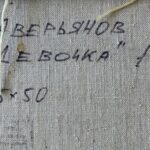 АВЕРЬЯНОВ
"ДЕВОЧКА"
5×50